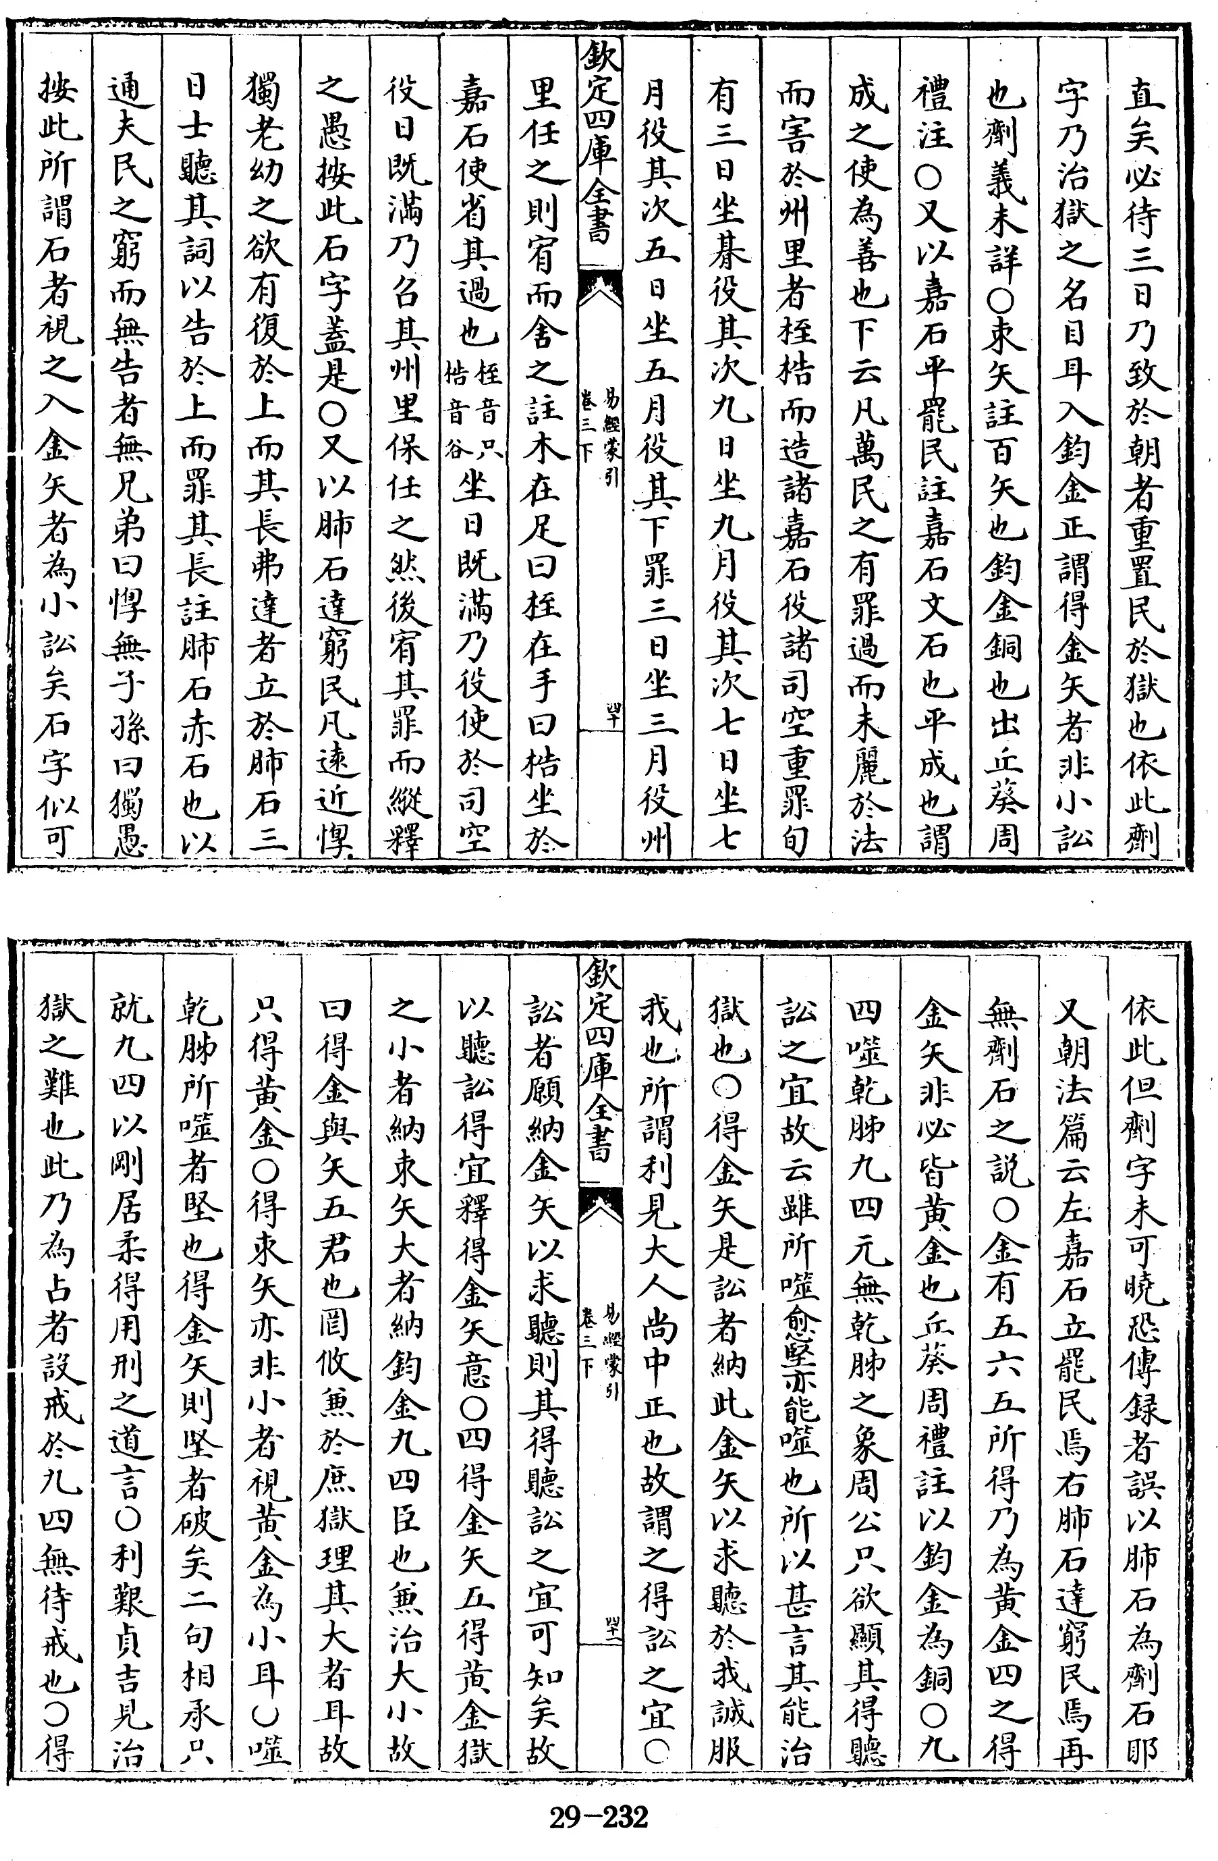 直矣必待三日乃致於朝者重置民於獄也依此劑
字乃治獄之名目耳入鈞金正謂得金矢者非小訟
也劑義未詳○束矢註百矢也鈞金銅也出丘葵周
禮注○又以嘉石平罷民註嘉石文石也平成也謂
成之使為善也下云凡萬民之有罪過而未麗於法
而害於州里者桎梏而造諸嘉石役諸司空重罪旬
有三日坐朞役其次九日坐九月役其次七日坐七
月役其次五日坐五月役其下罪三日坐三月役州
欽定四庫全書
易經蒙引
卷三下
四十
里任之則宥而舍之註木在足曰桎在手曰梏坐於
嘉石使省其過也桎音只梏音谷坐日既滿乃役使於司空
役日既滿乃召其州里保任之然後宥其罪而縱釋
之愚按此石字蓋是○又以肺石達窮民凡遠近惸
獨老幼之欲有復於上而其長弗達者立於肺石三
日士聽其詞以告於上而罪其長註肺石赤石也以
通夫民之窮而無告者無兄弟曰惸無子孫曰獨愚
按此所謂石者視之入金矢者為小訟矣石字似可
依此但劑字未可曉恐傳録者誤以肺石為劑石耶
又朝法篇云左嘉石立罷民焉右肺石達窮民焉再
無劑石之説○金有五六五所得乃為黃金四之得
金矢非必皆黃金也丘葵周禮註以鈞金為銅○九
四噬乾胏九四元無乾胏之象周公只欲顯其得聽
訟之宜故云雖所噬愈堅亦能噬也所以甚言其能治
獄也○得金矢是訟者納此金矢以求聽於我誠服
我也所謂利見大人尚中正也故謂之得訟之宜○
欽定四庫全書
易經蒙引
卷三下
四十一
訟者願納金矢以求聽則其得聽訟之宜可知矣故
以聽訟得宜釋得金矢意○四得金矢五得黃金獄
之小者納束矢大者納鈞金九四臣也兼治大小故
曰得金與矢五君也罔攸兼於庶獄理其大者耳故
只得黃金○得束矢亦非小者視黃金為小耳○噬
乾胏所噬者堅也得金矢則堅者破矣二句相承只
就九四以剛居柔得用刑之道言○利艱貞吉見治
獄之難也此乃為占者設戒於九四無待戒也○得
29-232